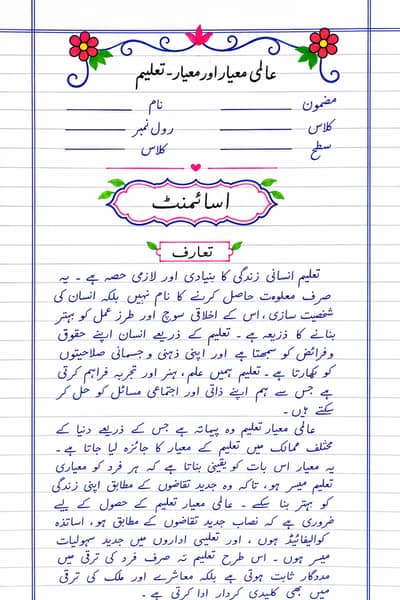 عالمی معیار اور معیار - تعلیم
مضمون ــــــــ نام ــــــــ
کلاس ــــــــ رول نمبر ــــــــ
سطح ــــــــ کلاس ــــــــ
اسائمنٹ
تعارف
تعلیم انسانی زندگی کا بنیادی اور لازمی حصہ ہے ۔ یہ
صرف معلومت حاصل کرنے کا نام نہیں بلکہ انسان کی
شخصیت سازی، اس کے اخلاقی سوچ اور طرز عمل کو بہتر
بنانے کا ذزیعہ ہے ۔ تعلیم کے ذریعے انسان اپنے حقوق
وفرائض کو سمجھتا ہے اور اپنی ذہنی و جسمانی صلاحیتوں
کو نکھارتا ہے ۔ تعلیم ہمیں علم، ہنر اور تجربہ فراہم کرتی
ہے جس سے ہم اپنے ذاتی اور اجتماعی مسائل کو حل کر
سکتے ہیں ۔
عالمی معیار تعلیم وہ پیمانہ ہے جس کے ذریعے دنیا کے
مختلف ممالک میں تعلیم کے معیار کا جائزہ لیا جاتا ہے ۔
یہ معیار اس بات کو یقینی بناتا ہے کہ ہر فرد کو معیاری
تعلیم میسر ہو، تاکہ وہ جدید تقاضوں کے مطابق اپنی زندگی
کو بہتر بنا سکے ۔ عالمی معیار تعلیم کے حصول کے لیے
ضروری ہے کہ نصاب جدید تقاضوں کے مطابق ہو، اساتذہ
کوالیفائیڈ ہوں ، اور تعلیمی اداروں میں جدید سہولیات
میسر ہوں ۔ اس طرح تعلیم نہ صرف فرد کی ترقی میں
مددگار ثابت ہوتی ہے بلکہ معاشرے اور ملک کی ترقی
میں بھی کلیدی کردار ادا کرتی ہے ۔